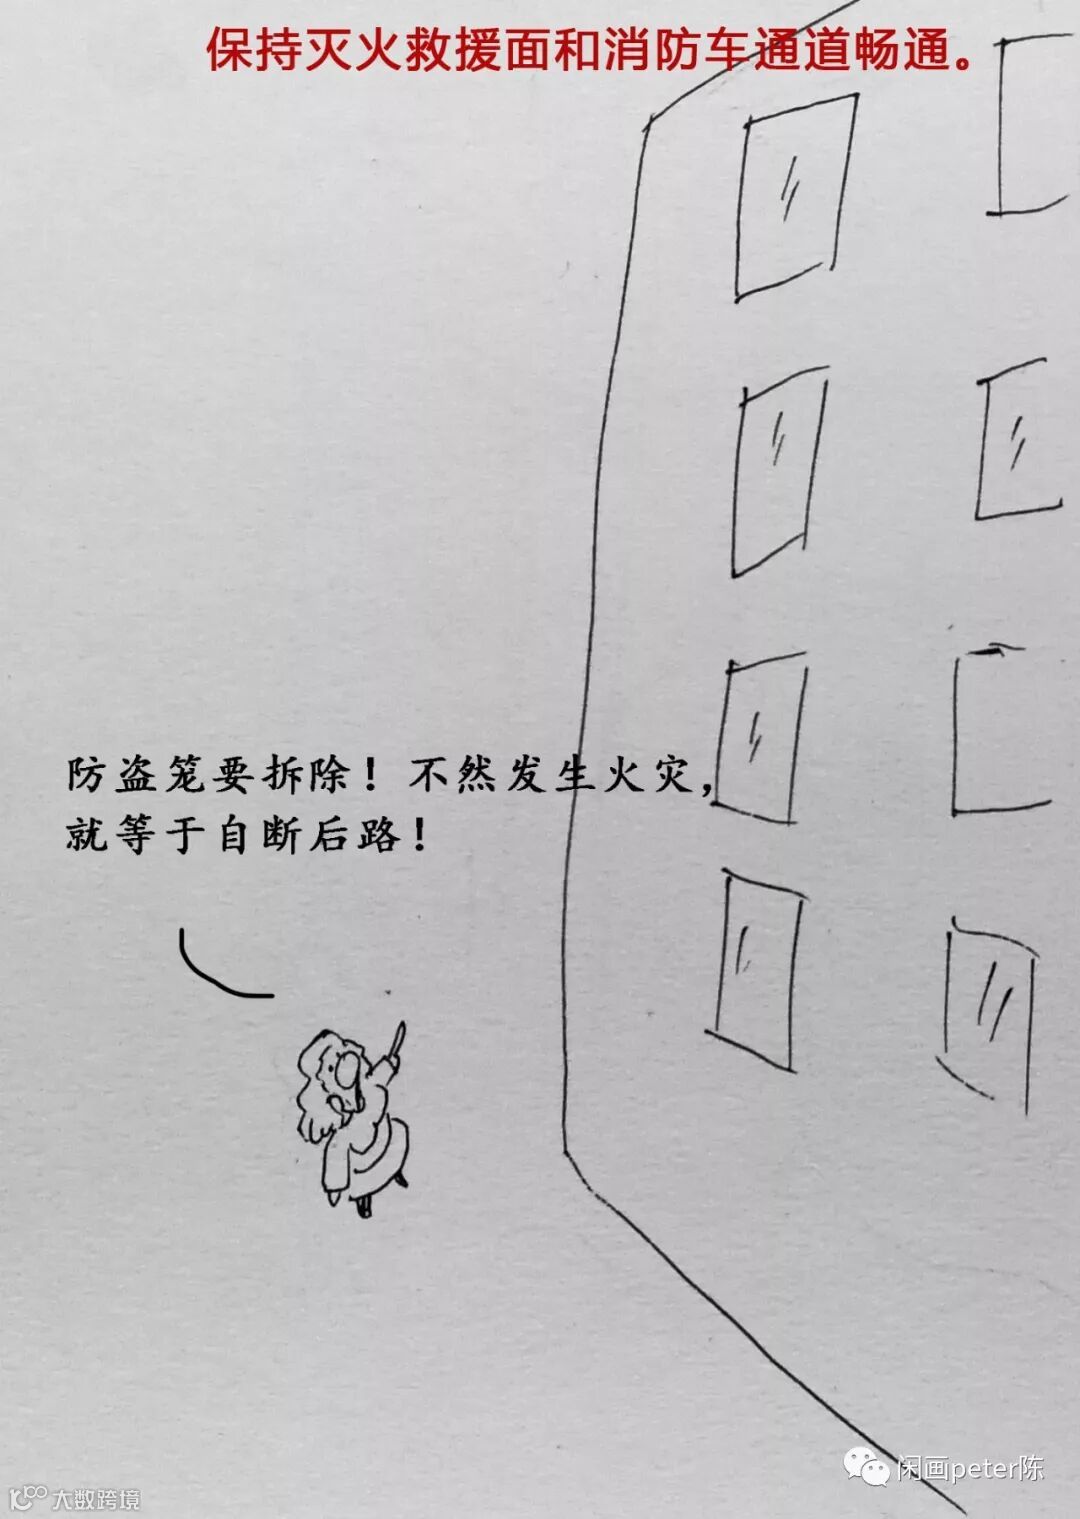 保持灭火救援面和消防车通道畅通。
防盗笼要拆除！不然发生火灾，
就等于自断后路！
闲画peter陈
大数跨境